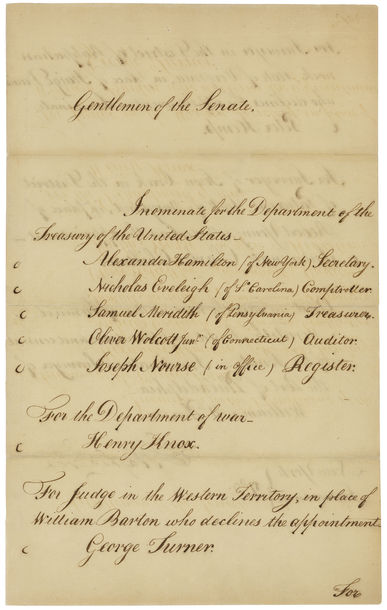 Gentlemen of the Senate.
I nominate for the Department of the
Treasury of the United States_
c Alexander Hamilton (of New York) Secretary.
c Nicholas Eveleigh (of So Carolina) Comptroller.
c Samuel Meredith (of Pensylvania) Treasurer.
c Oliver Wolcott Junr. (of Connecticut) Auditor.
c Joseph Nourse (in office) Register.
For the Department of war_
c Henry Knox.
For Judge in the Western Territory, in place of
William Barton who declines the appointment_
c George Turner.
For